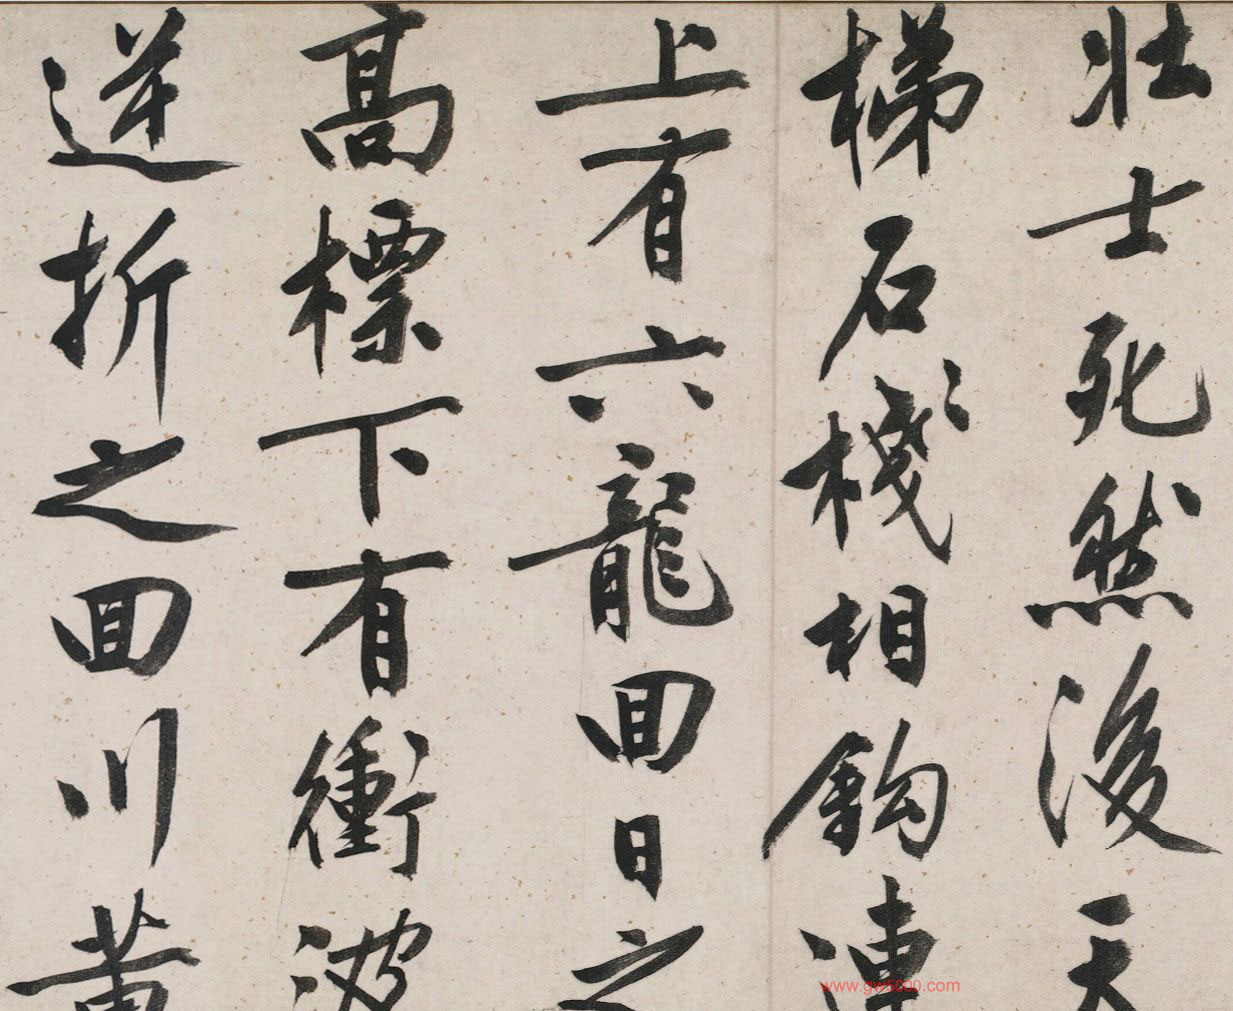 壯士死然後天
梯石棧〻相鉤連
上有六龍回日之
高標下有衝波
逆折之回川黃
www.gw5000.com